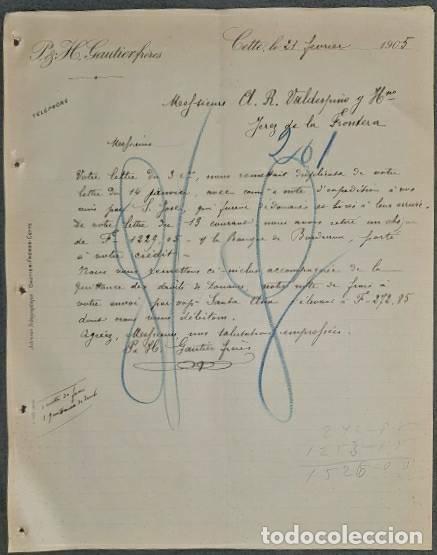 P. & H. Gautier frères
Cette, le 21 février 1905
TÉLÉPHONE
Messieurs A. R. Valdespino y Hno
Jerez de la Frontera
201
Messieurs
Votre lettre du 3 ct, nous remettait duplicata de votre
lettre du 14 janvier, avec note d'expédition à nos
par S. José, qui
De votre lettre du 13 courant nous avons retiré un chèque
de F 1229,05 s/ la Banque de Bordeaux, porté
à votre crédit.
Nous vous remettons ci-inclus accompagnée de la
quittance des droits de Douane, notre note de frais à
votre envoi par vap. Santa Ana s'élevant à F 272,85
dont vous débitons.
Agréez, Messieurs, nos salutations empressées.
P. & H. Gautier frères
Adresse Télégraphique : GAUTIER-FRÈRES-CETTE
1 note de frais
1 quittance de
1253
1526
todocoleccion.net